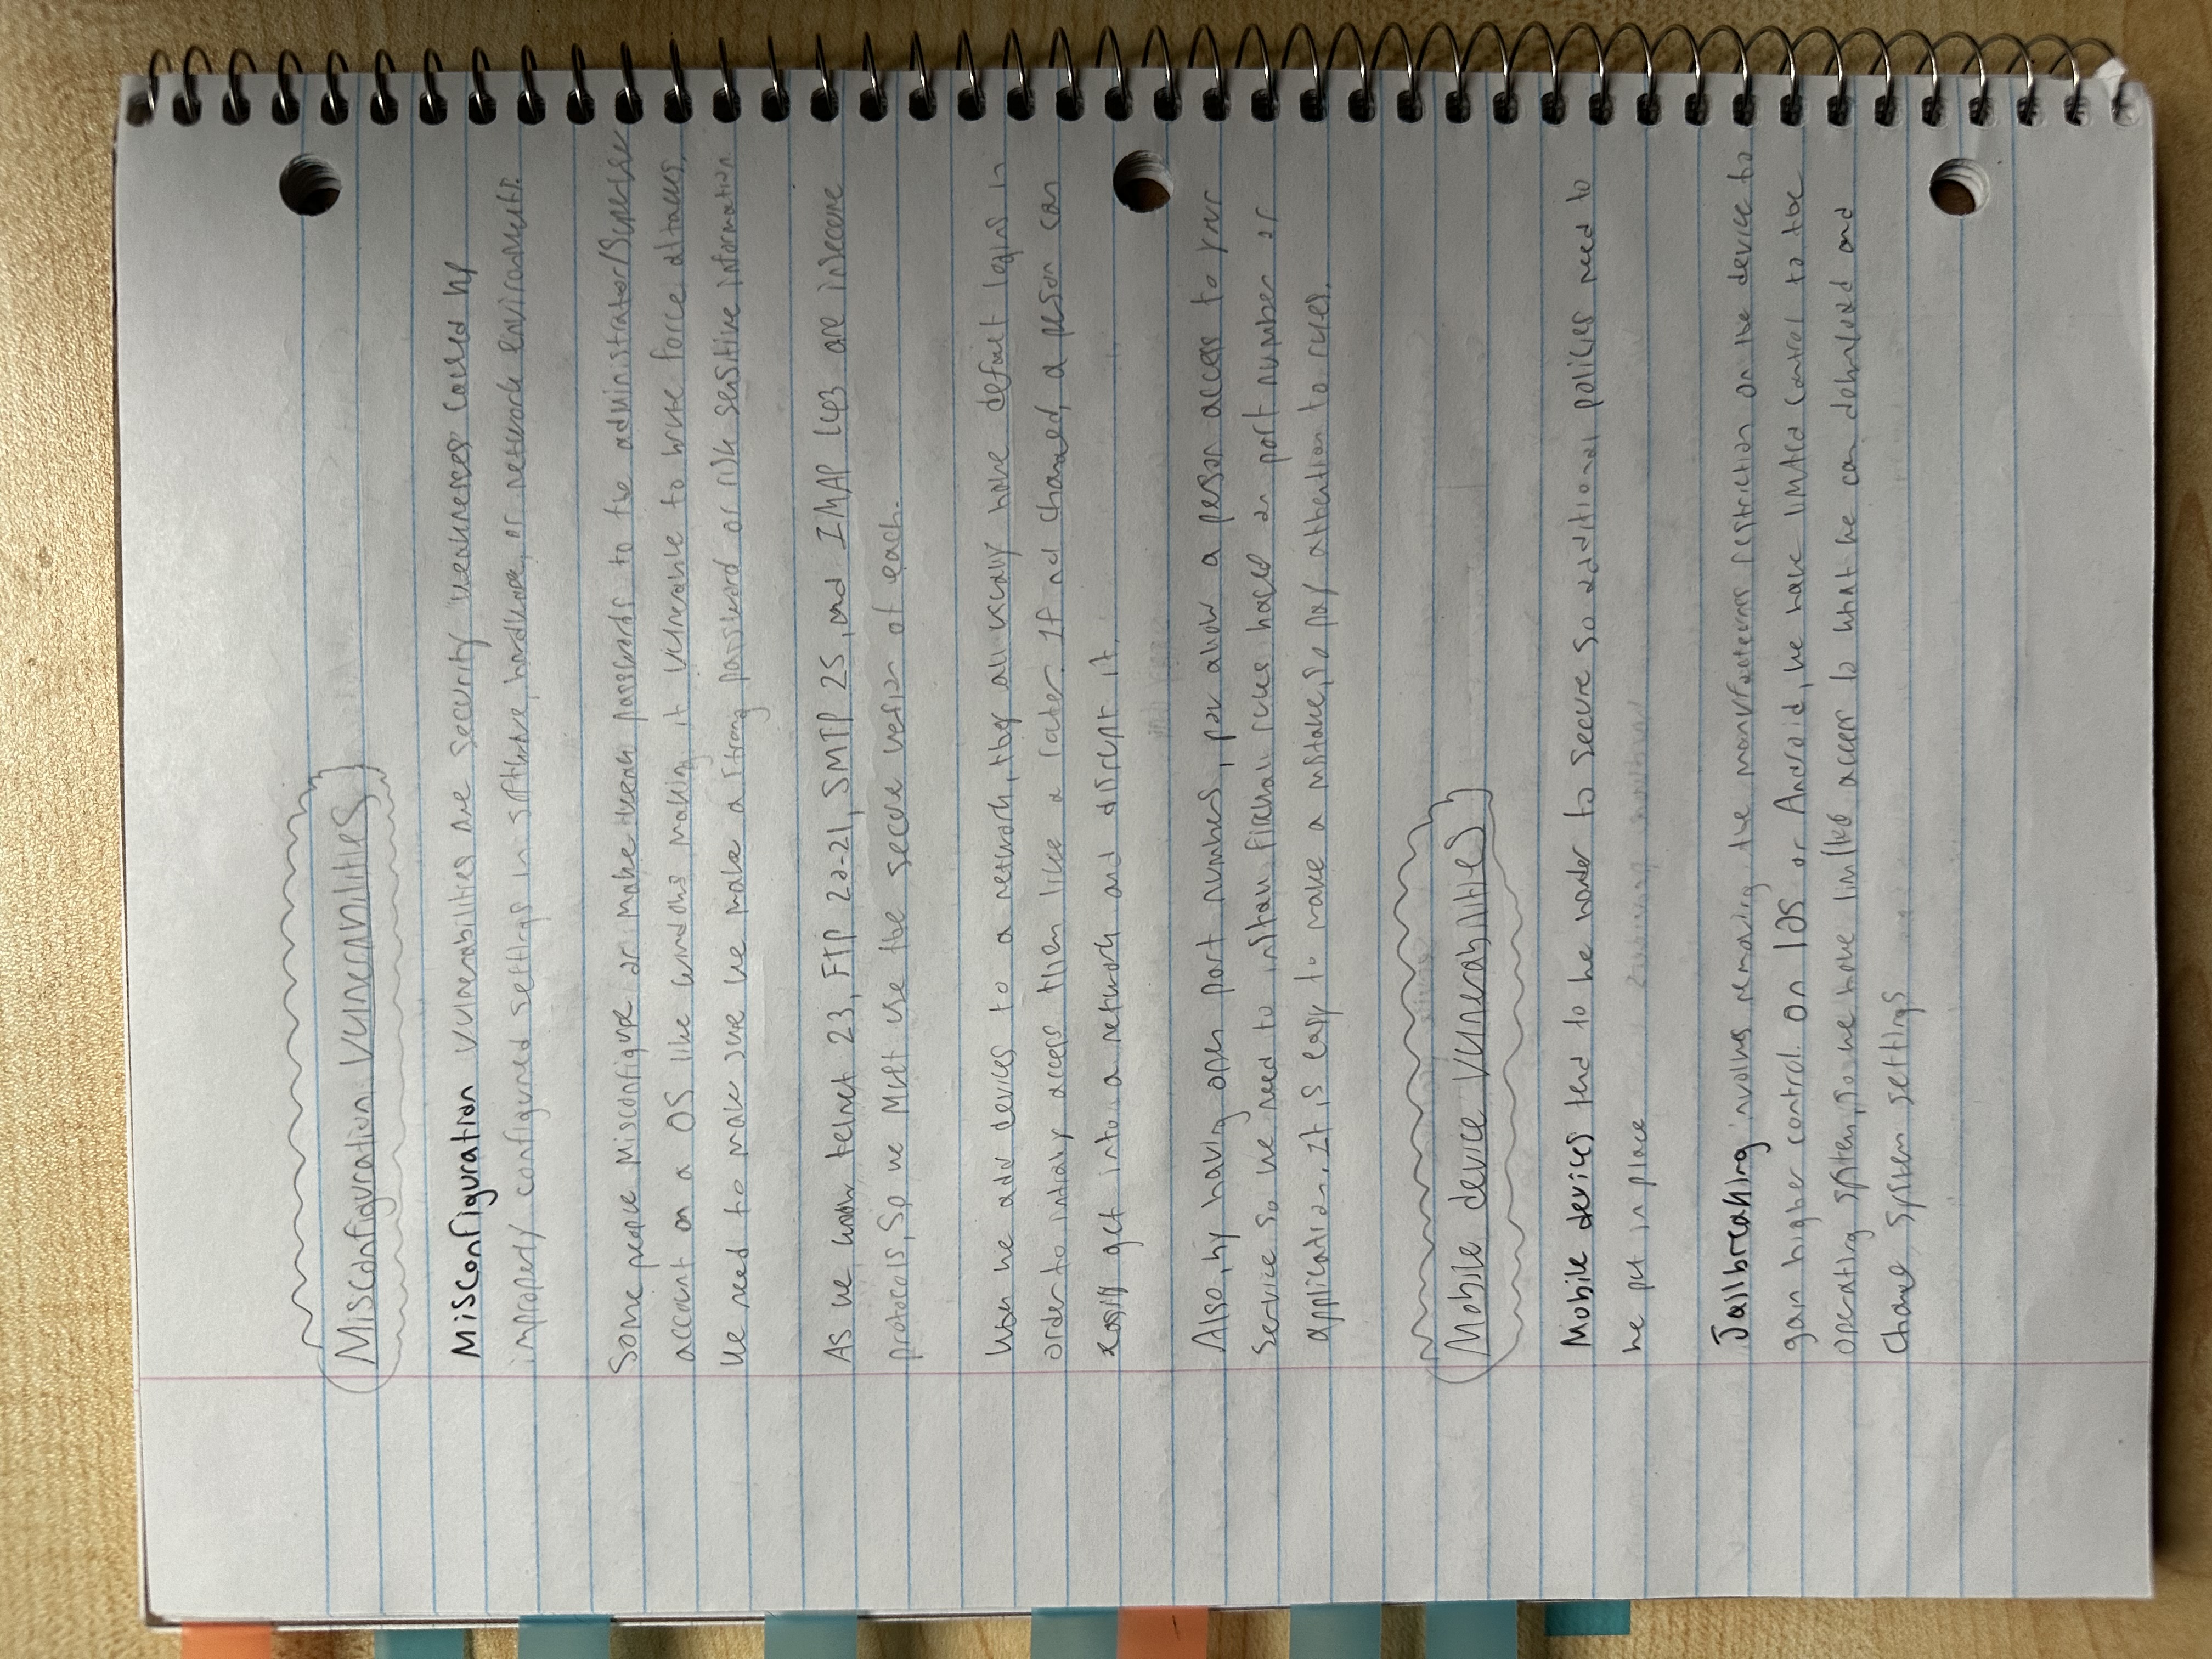 Misconfiguration Vulnerabilities
Misconfiguration vulnerabilities are security weaknesses caused by
improperly configured settings in software, hardware, or network environments.
Some people misconfigure or make weak passwords to the administrator/Superuser
account on a OS like windows making it vulnerable to brute force attacks.
We need to make sure we make a strong password or risk sensitive information.
As we know telnet 23, FTP 20-21, SMTP 25, and IMAP 143 are insecure
protocols, So we must use the secure version of each.
When we add devices to a network, they all usually have default logins in
order to access them like a router. If not changed, a person can
easily get into a network and disrupt it.
Also, by having open port numbers, you allow a person access to your
service so we need to install firewall rules based on port number or
application. It is easy to make a mistake, so pay attention to rules.
Mobile device vulnerabilities
Mobile devices tend to be harder to secure so additional policies need to
be put in place
Jailbreaking involves removing the manufacturers restriction on the device to
gain higher control. On IOS or Android, we have limited control to the
operating system, so we have limited access to what we can download and
change system settings